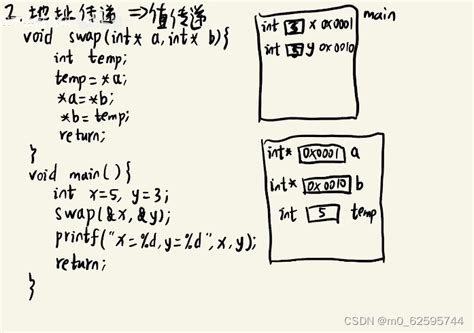 2. 地址传递 => 值传递
void swap(int* a, int* b){
int temp;
temp=*a;
*a=*b;
*b=temp;
return;
}
void main(){
int x=5, y=3;
swap(&x,&y);
printf("x=%d,y=%d",x,y);
return;
}
main
int 3 x 0x0001
int 5 y 0x0010
int* 0x0001 a
int* 0x0010 b
int 5 temp
CSDN @m0_62595744